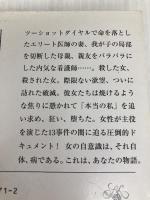 ツーショットダイヤルで命を落とした
エリート医師の妻、我が子の局部
を切断した母親、親友をバラバラに
した内気な看護師……。殺した女、
殺された女。際限ない欲望、ついに
訪れた破滅。彼女たちは焼けるよう
な焦りに憑かれて「本当の私」を追
い求め、狂い、堕ちた。女性が主役
を演じた13事件の闇に迫る圧倒的ド
キュメント！ 女の自意識は、それ自
体、病である。これは、あなたの物語。